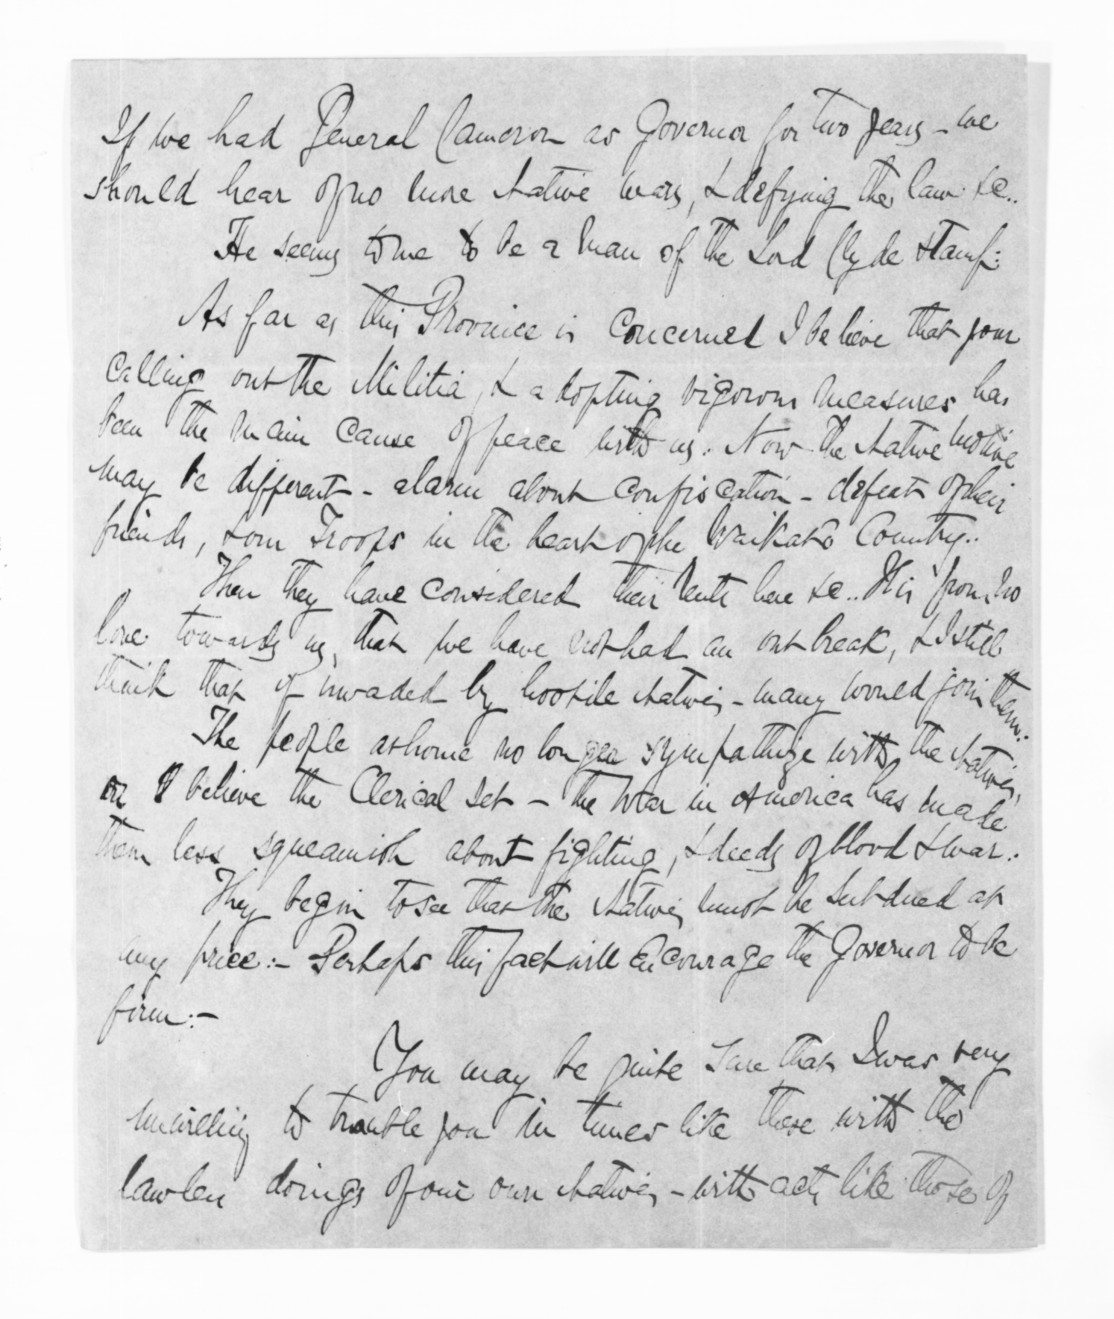 If we had General Cameron as Governor for two years - we
should hear of no more Native wars, & defying the law &c..
He seems to me to be a man of the Lord Clyde stamp:
As far as this Province is concerned I believe that your
calling out the Militia, & adopting vigorous measures has
been the main cause of peace with us. Now the Native motive
may be different - alarm about confiscation - defeat of their
friends, & our Troops in the heart of the Waikato Country..
Then they have considered their rents here &c.. It is from no
love towards us, that we have not had an outbreak, & I still
think that if invaded by hostile Natives - many would join them.
The people at home no longer sympathize with the Natives,
or I believe the Clerical set - the War in America has made
them less squeamish about fighting, & deeds of blood & war.
They begin to see that the Natives must be subdued at
any price:- Perhaps this fact will encourage the Governor to be
firm:-
You may be quite sure that I was very
unwilling to trouble you in times like these with the
lawless doings of our own Natives, - with acts like those of